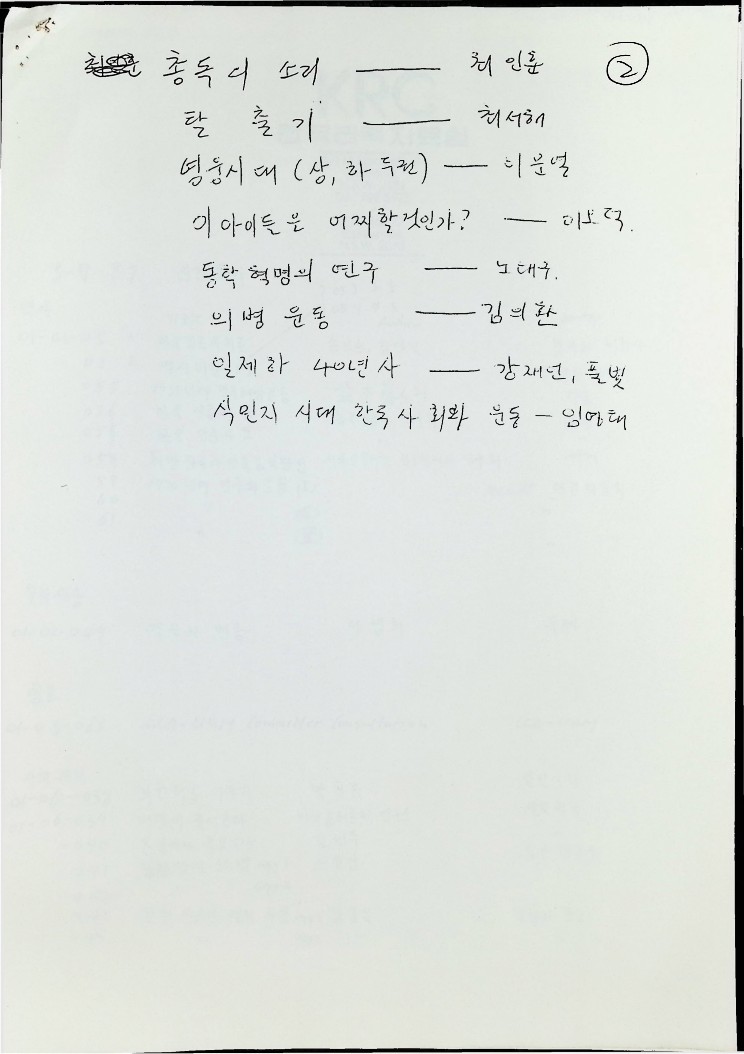 총독의 소리 —— 최인훈 ②
탈출기 —— 최서해
영웅시대 (상, 하 두권) —— 이문열
이 아이들은 어찌할것인가? —— 이오덕.
동학혁명의 연구 —— 노태구.
의병 운동 —— 김의환
일제하 40년사 —— 강재언, 풀빛
식민지 시대 한국사회와 운동 — 임영태